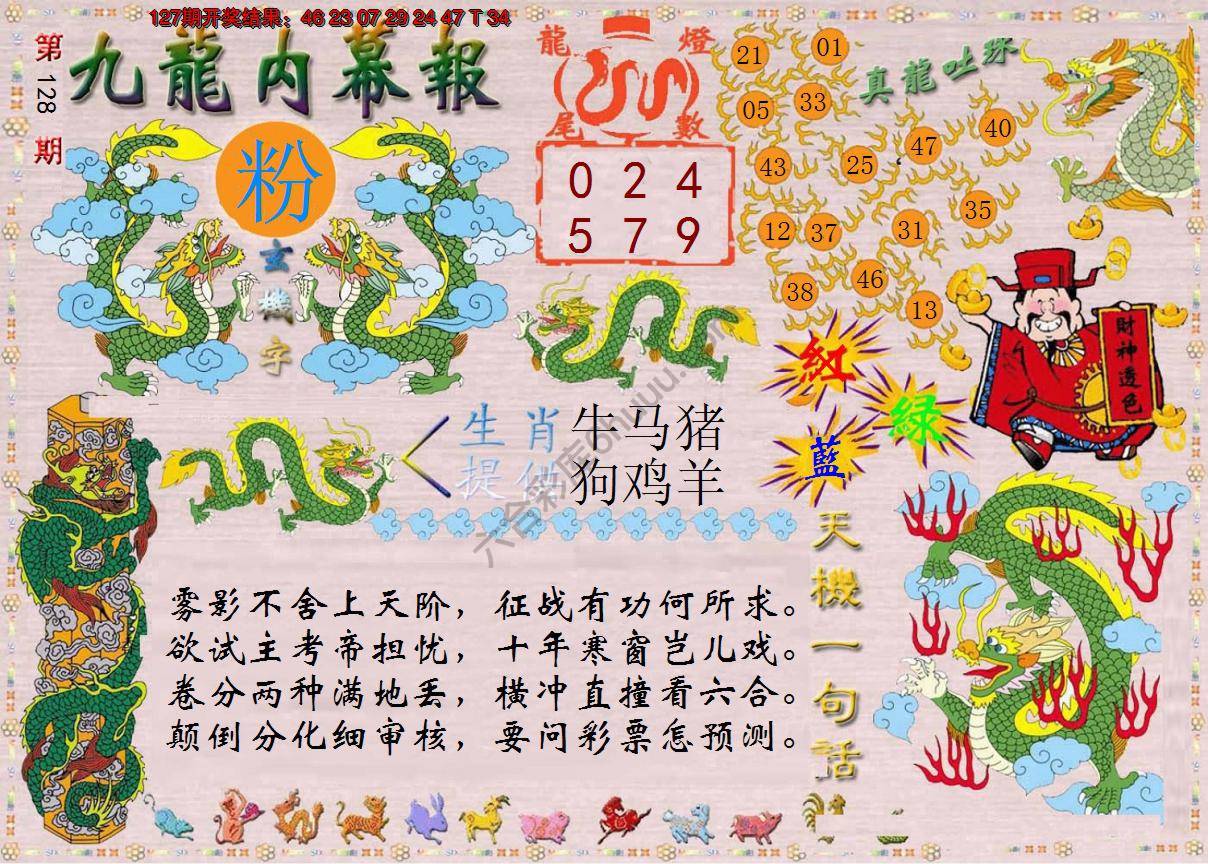 127期开奖结果：46 23 07 29 24 47 T 34
第128期
九龍内幕報
粉
玄機字
龍燈
尾數
0 2 4
5 7 9
真龍吐珠
21 01
05 33
43 25 47 40
12 37 31 35
38 46 13
財神透色
紅
綠
藍
生肖 牛马猪
提供 狗鸡羊
天機一句話
雾影不舍上天阶，征战有功何所求。
欲试主考帝担忧，十年寒窗岂儿戏。
卷分两种满地丢，横冲直撞看六合。
颠倒分化细审核，要问彩票怎预测。